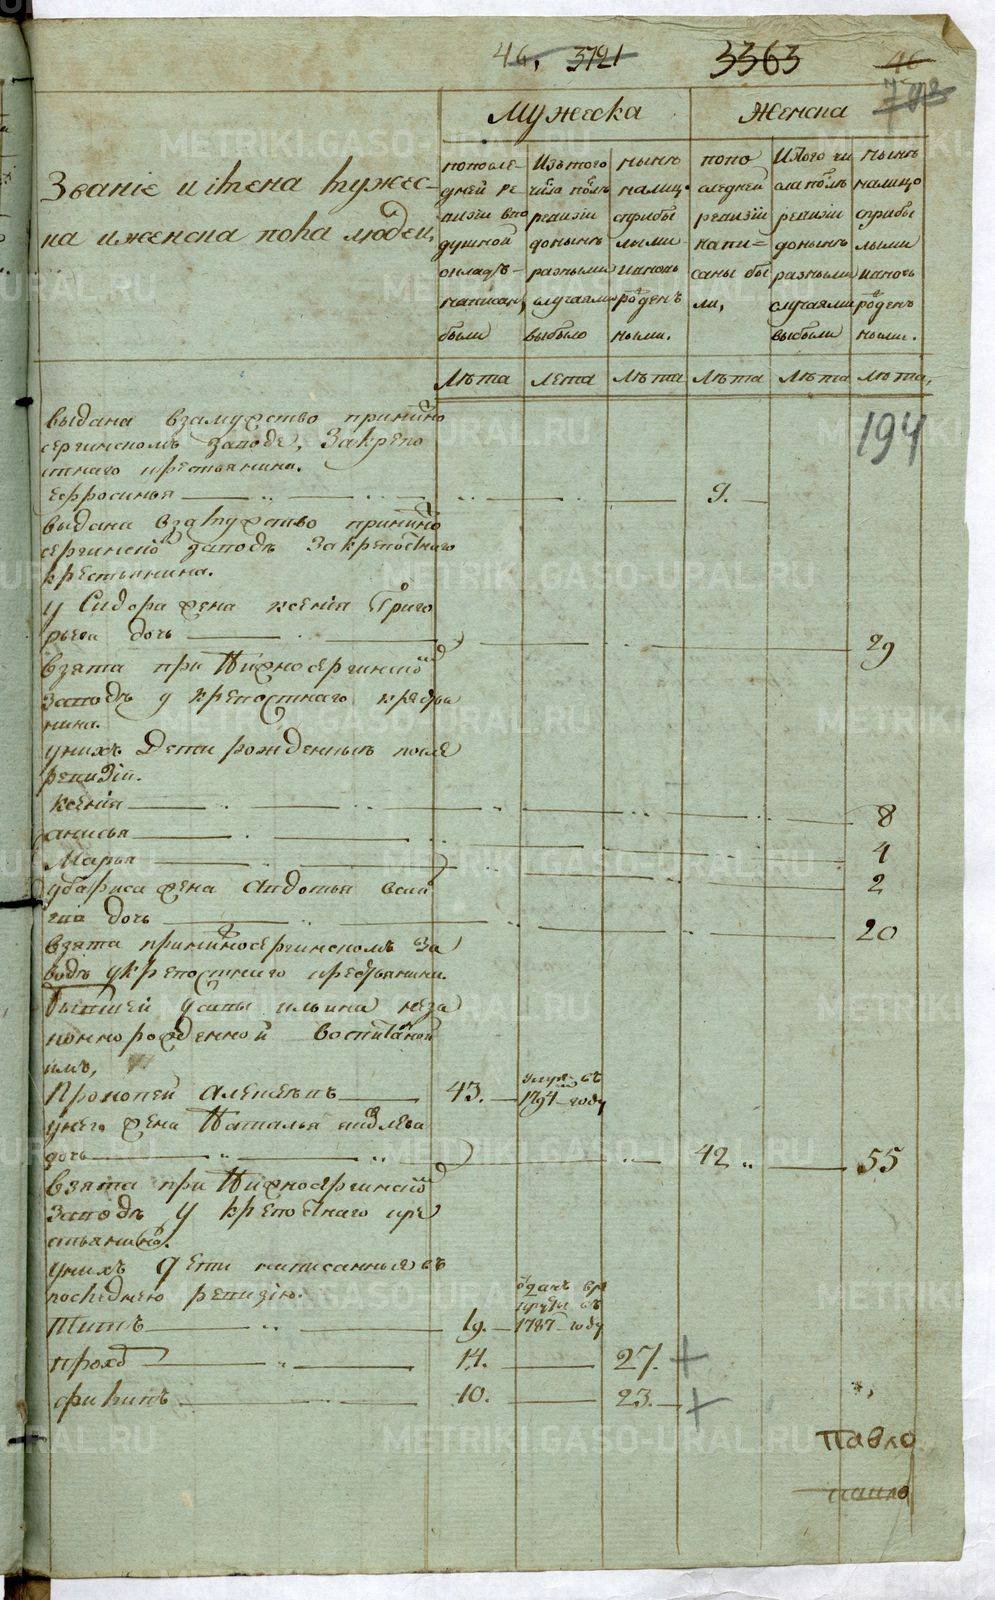 46. 3721 3363 46
792
Мужеска Женска
Званіе и имена мужес-
ка и женска пола людей,
попосле-
дней ре-
визіи впо
душной
окладъ-
написан,
были
Изътого
числа полъ
ревизіи
донынъ
разными
случаями
выбыло
нынѣ
налицо
сприбы
лыми
иановь
рожденъ
ными.
попо
следней
ревизіи
напи=
саны бы
ли,
Итого чи
сла полъ
ревизіи
донынъ
разными
случаями
выбыли
нынѣ
налицо
сприбы
лыми
иановь
рожденъ
ными.
Лѣта лета Лѣта Лѣта Лѣта лѣта,
194
выдана взамужство принижно
сергинскомъ заводе, Закрепо
стнаго крестьянина.
Ефросинья 9.
выдана взамужство принижно
сергинскй заводъ Закрепостнаго
крестьянина.
у Сидора жена ксенія Григо
рьева дочь 29
взята при Нижносергинскй
заводъ у крепостнаго крестья
нина.
унихъ Дети рожденныя после
ревизіи.
ксенія 8
анисья 4
Марья 2
убариса жена Авдотья васи
ева дочь 20
взята принижносергинскомъ за
водъ укрепостнаго крестьянина.
бывшей усавы ильина неза
коннорожденной воспитанной
имъ,
Прокопей Алексеевъ 43. умре въ
1794 году
унего жена Наталья яковлева
дочь 42 55
взята при Нижносергинскй
заводъ у крепостнаго кре
стьянина.
унихъ дети написанныя въ
последнею ревизію.
Титъ 19. отданъ въ
рекруты въ
1787 году
прохоръ 14. 27. +
филипъ 10. 23. +
Павло
павло